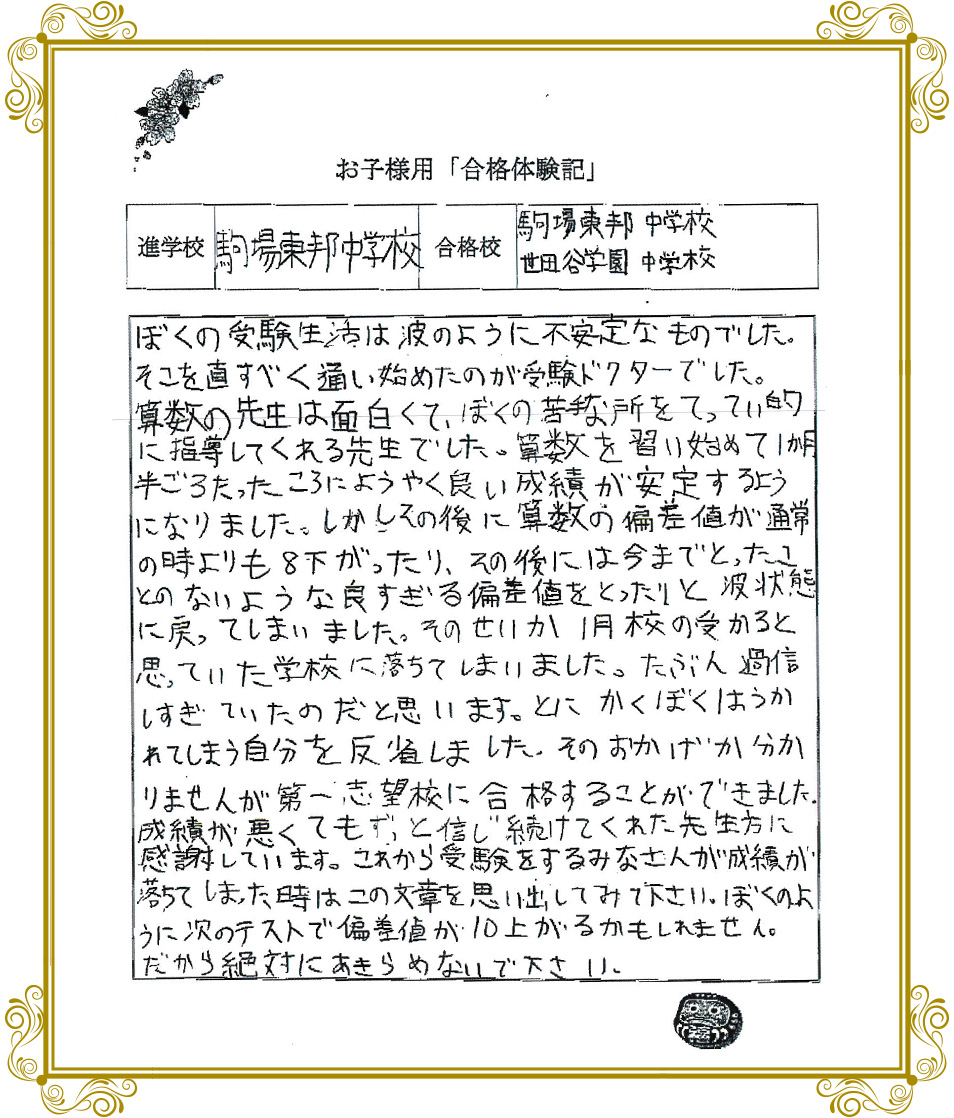 お子様用「合格体験記」
進学校 駒場東邦中学校 合格校 駒場東邦 中学校
世田谷学園 中学校
ぼくの受験生活は波のように不安定なものでした。
そこを直すべく通い始めたのが受験ドクターでした。
算数の先生は面白くて、ぼくの苦手な所をてってい的
に指導してくれる先生でした。算数を習い始めて1か月
半ごろたったころにようやく良い成績が安定するよう
になりました。しかしその後に算数の偏差値が通常
の時よりも8下がったり、その後には今までとったこ
とのないような良すぎる偏差値をとったりと波状態
に戻ってしまいました。そのせいか1月校の受かると
思っていた学校に落ちてしまいました。たぶん過信
しすぎていたのだと思います。とにかくぼくはうか
れてしまう自分を反省しました。そのおかげか分か
りませんが第一志望校に合格することができました。
成績が悪くてもずっと信じ続けてくれた先生方に
感謝しています。これから受験をするみなさんが成績が
落ちてしまった時はこの文章を思い出してみて下さい。ぼくのよ
うに次のテストで偏差値が10上がるかもしれません。
だから絶対にあきらめないで下さい。